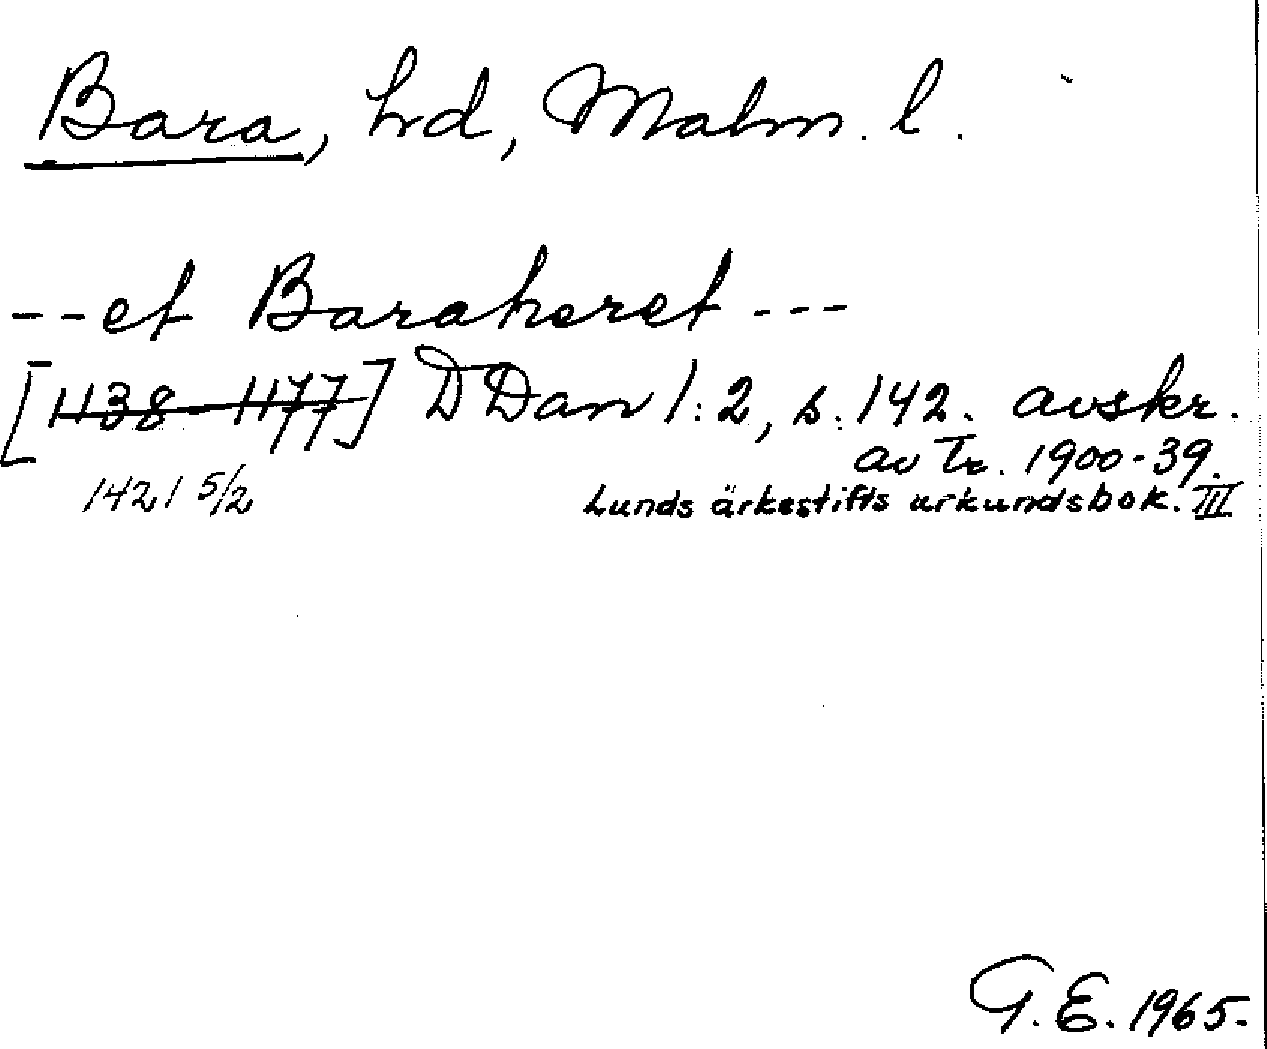 Bara, hd, Malm. l.
--et Baraheret ---
[1138-1177] DDan 1:2, s. 142. avskr.
av Tr. 1900-39.
1421 5/2
Lunds ärkestifts urkundsbok. III
G.E. 1965.